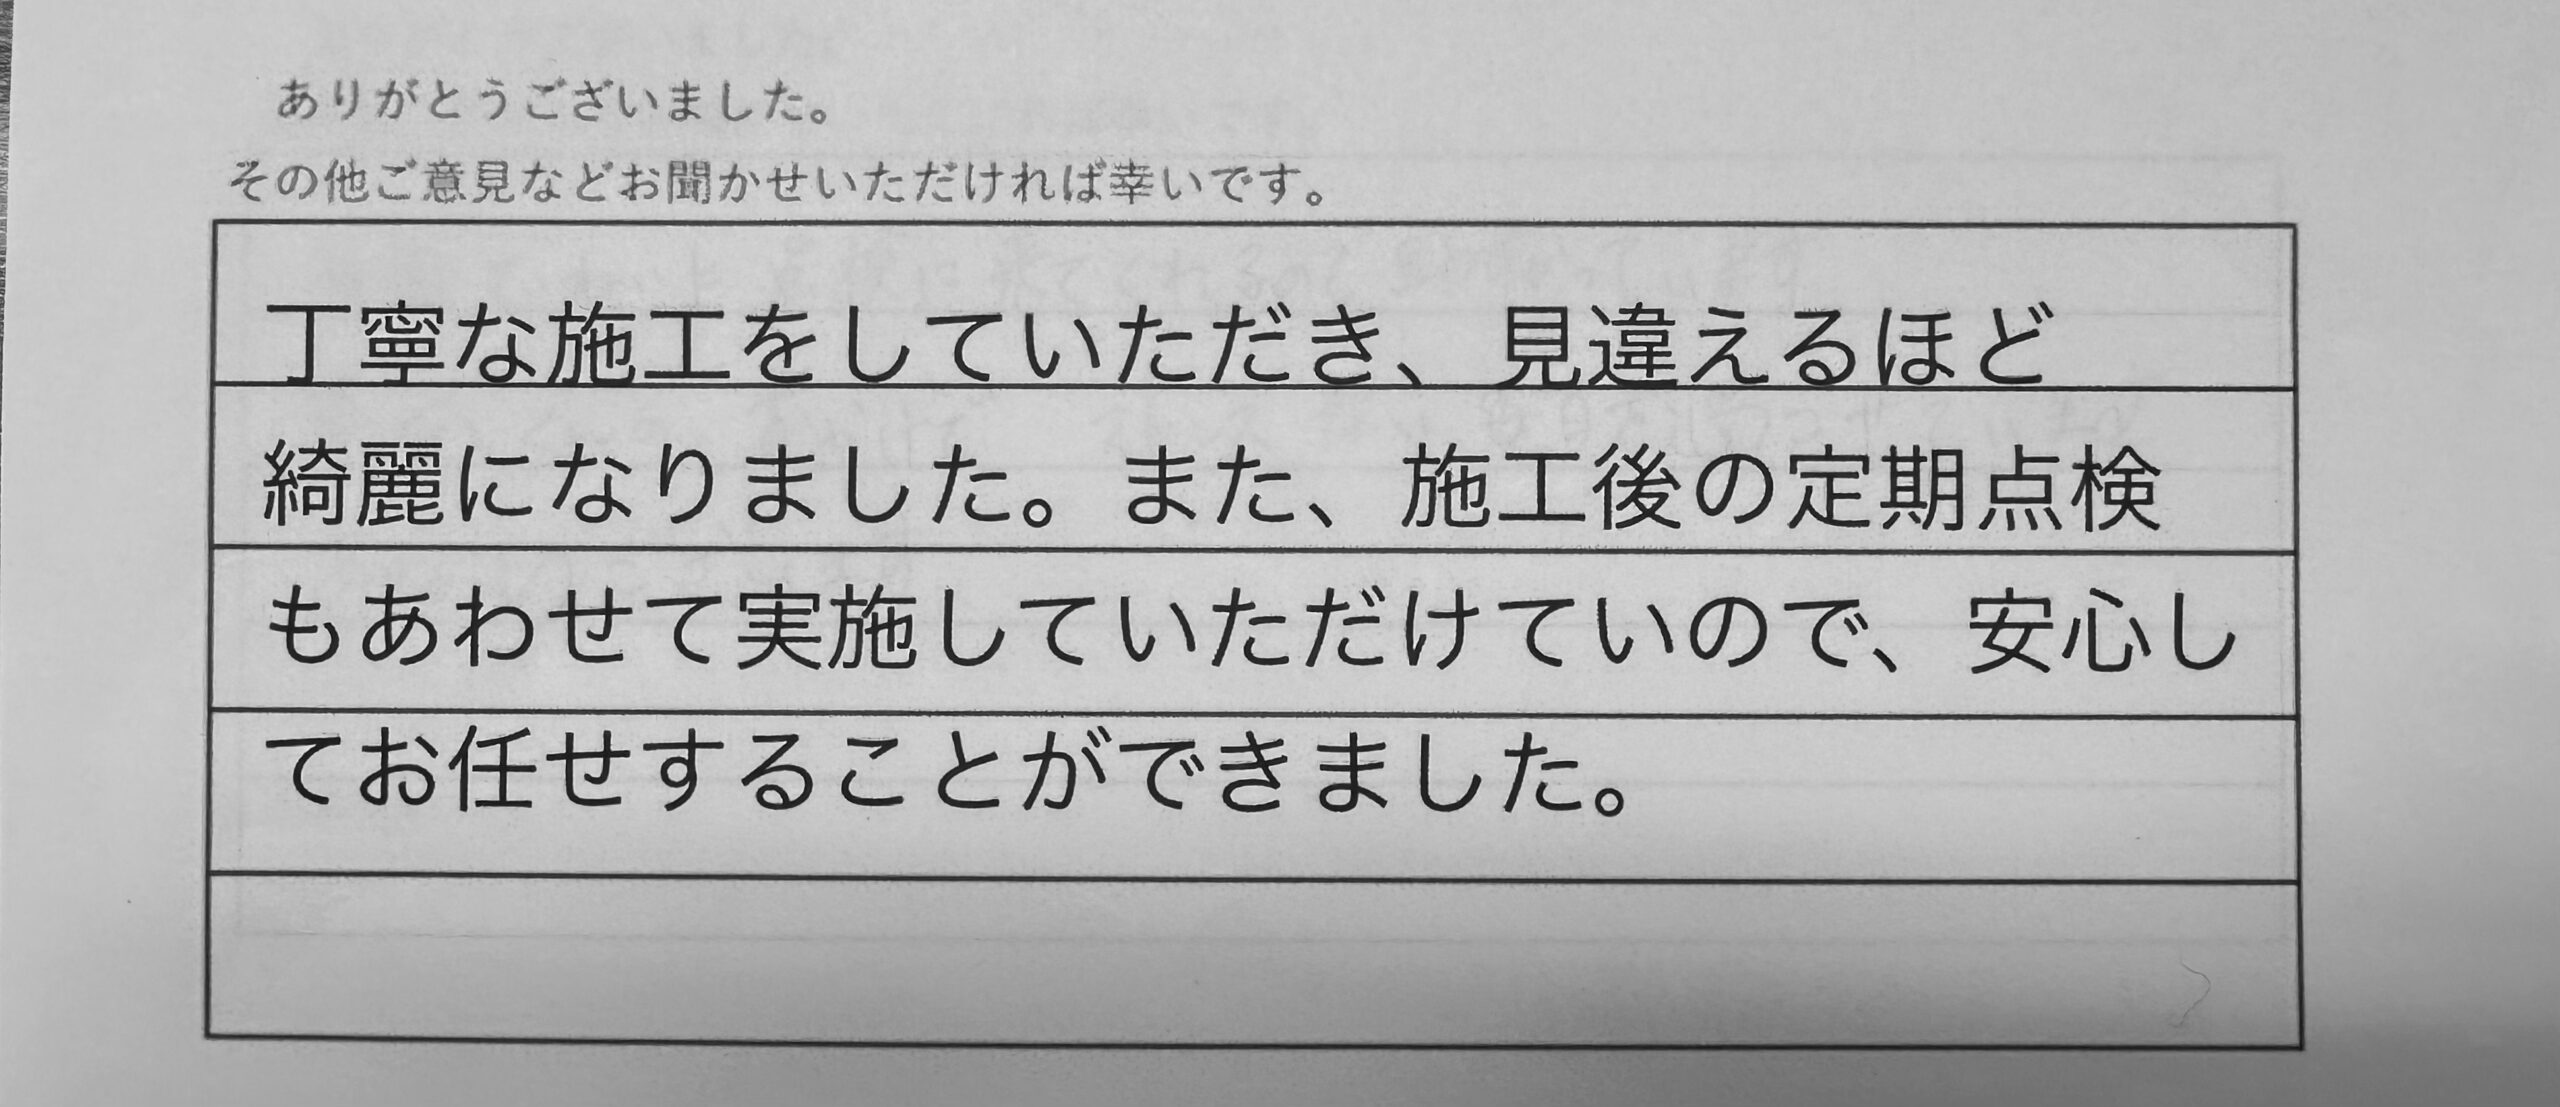 ありがとうございました。
その他ご意見などお聞かせいただければ幸いです。
丁寧な施工をしていただき、見違えるほど
綺麗になりました。また、施工後の定期点検
もあわせて実施していただけていので、安心し
てお任せすることができました。